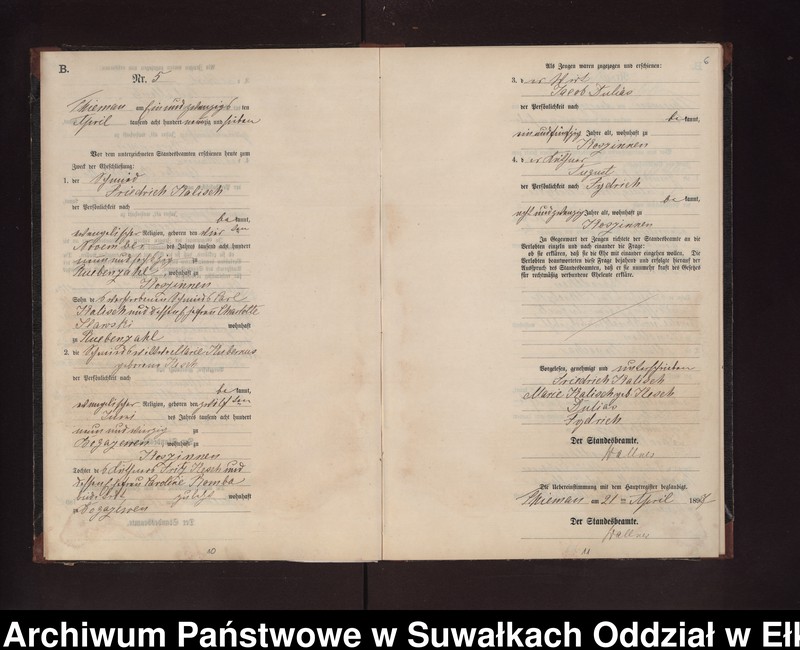 B.
Nr. 5
am ein und zwanzigsten
April tausend acht hundert neunzig und sieben
Vor dem unterzeichneten Standesbeamten erschienen heute zum
Zweck der Eheschließung:
1. der Schmied
Friedrich Kalisch
der Persönlichkeit nach
be kannt,
evangelischer Religion, geboren den
November des Jahres tausend acht hundert
zu
, wohnhaft zu
Koszinnen
Sohn des verstorbenen Schmieds Carl
Kalisch und dessen Ehefrau Charlotte
Slawski wohnhaft
zu
2. die Marie
geborene Kesch
der Persönlichkeit nach
be kannt,
evangelischer Religion, geboren den zwölften
Juni des Jahres tausend acht hundert
neun und zu
Rogazewen wohnhaft zu
Koszinnen
Tochter des Käthners Fritz Kesch und
dessen Ehefrau Caroline
wohnhaft
zu Rogazewen
10
6
Als Zeugen waren zugezogen und erschienen:
3. der Wirt
Jacob Dulias
der Persönlichkeit nach
be kannt,
ein und fünfzig Jahre alt, wohnhaft zu
Koszinnen
4. der Käthner
August
der Persönlichkeit nach Fydrich
be kannt,
acht und zwanzig Jahre alt, wohnhaft zu
Koszinnen
In Gegenwart der Zeugen richtete der Standesbeamte an die
Verlobten einzeln und nach einander die Frage:
ob sie erklären, daß sie die Ehe mit einander eingehen wollen. Die
Verlobten beantworteten diese Frage bejahend und erfolgte hierauf der
Ausspruch des Standesbeamten, daß er sie nunmehr kraft des Gesetzes
für rechtmäßig verbundene Eheleute erkläre.
Vorgelesen, genehmigt und unterschrieben
Friedrich Kalisch
Marie Kalisch geb. Kesch
Dulias
Fydrich
Der Standesbeamte.
Die Uebereinstimmung mit dem Hauptregister beglaubigt.
am 21ten April 1897
Der Standesbeamte.
11
Archiwum Państwowe w Suwałkach Oddział w Ełk